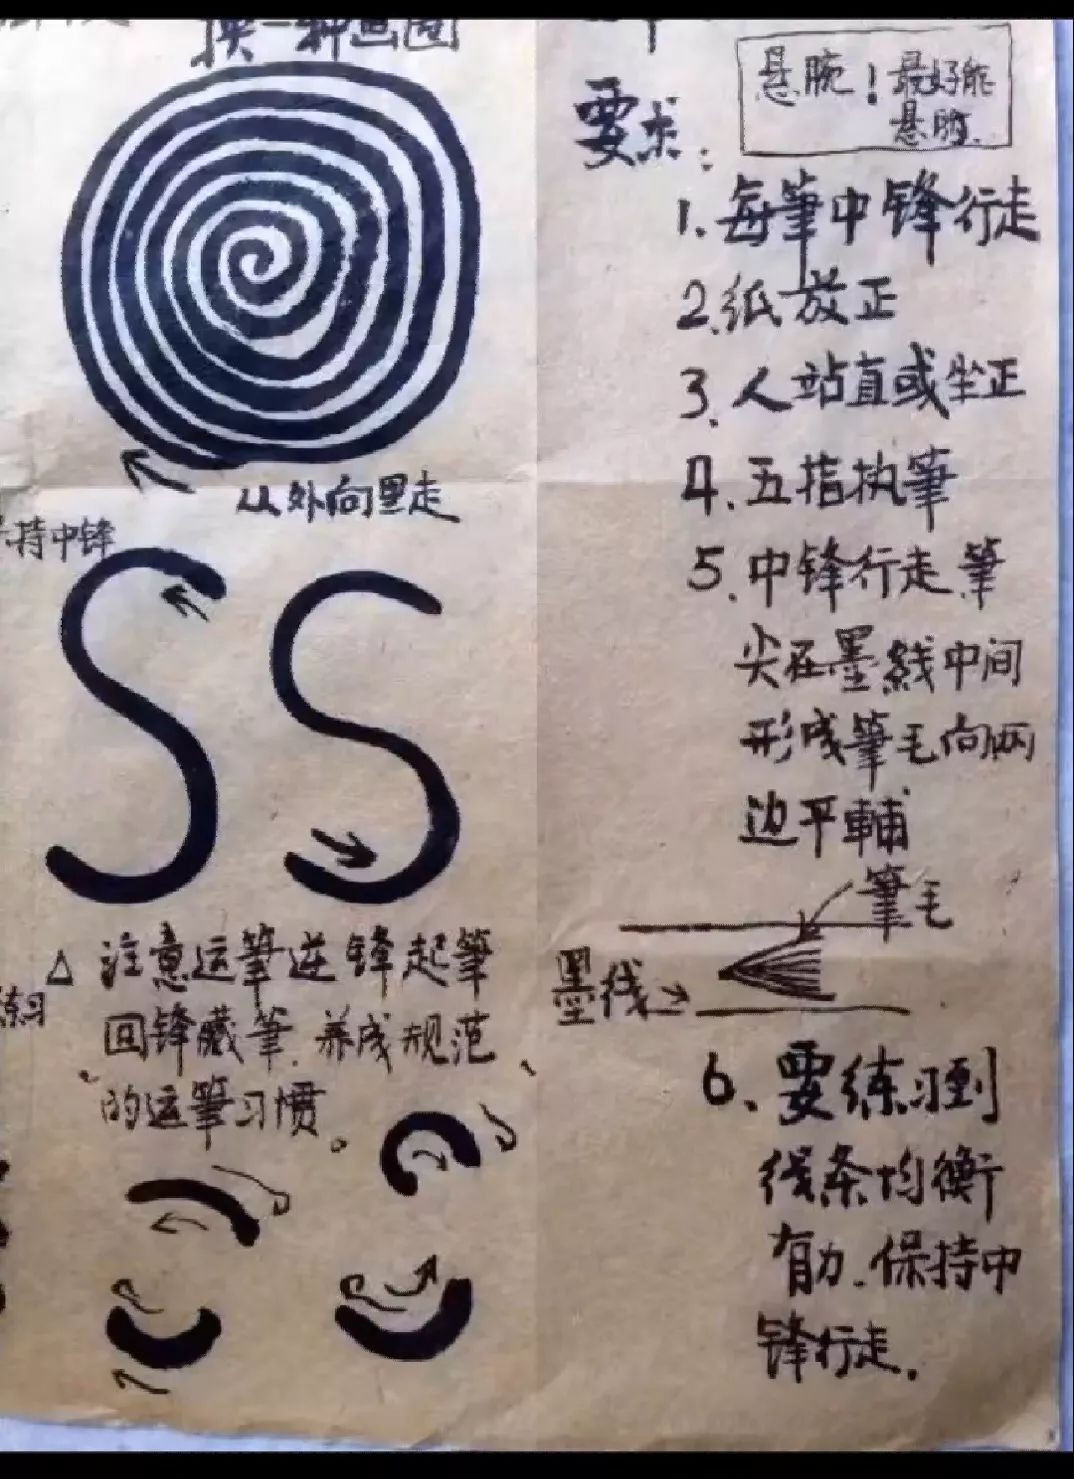 换一种画圈
从外向里走
持中锋
△ 注意运筆逆锋起筆
回锋藏筆.养成规范
的运筆习惯。
练习
悬腕！最好能
悬肘.
要求：
1.每筆中锋行走
2.纸放正
3.人站直或坐正
4.五指执筆
5.中锋行走筆
尖在墨线中间
形成筆毛向两
边平輔
筆毛
墨线→
6.要练习到
线条均衡
有力.保持中
锋行走.